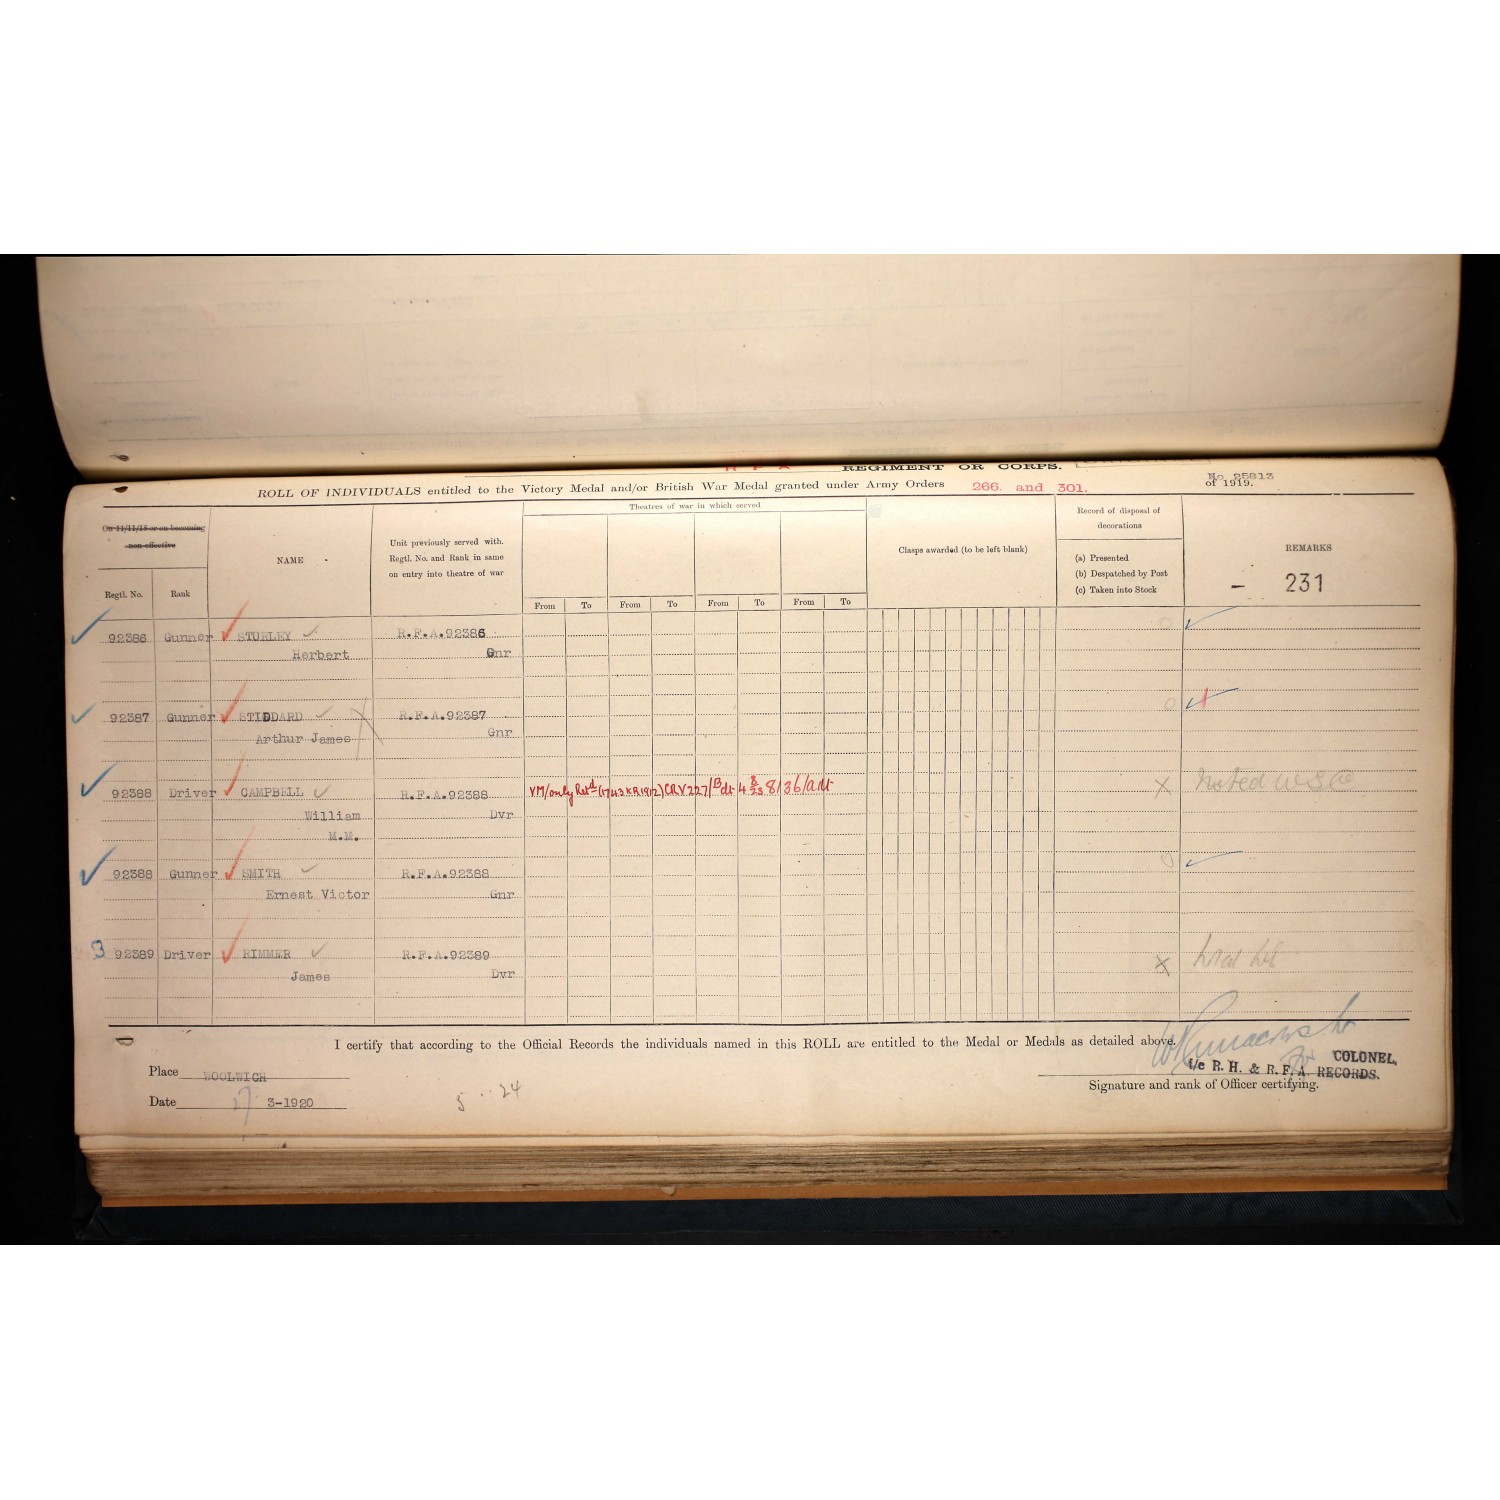 R F A REGIMENT OR CORPS.
ROLL OF INDIVIDUALS entitled to the Victory Medal and/or British War Medal granted under Army Orders 266. and 301. of 1919.
No. 25813
On 11/11/18 or on becoming
non-effective
Regtl. No. Rank
NAME
Unit previously served with.
Regtl. No. and Rank in same
on entry into theatre of war
Theatres of war in which served
From To From To From To From To
Clasps awarded (to be left blank)
Record of disposal of
decorations
(a) Presented
(b) Despatched by Post
(c) Taken into Stock
REMARKS
- 231
92386 Gunner STURLEY R.F.A.92386
Herbert Gnr
92387 Gunner STIDDARD R.F.A.92387
Arthur James Gnr
92388 Driver CAMPBELL R.F.A.92388 VM/only Retd (1743 KR1912) CRV227/B dt 4 8/23 8136/Adt X Noted
William Dvr
M.M.
92388 Gunner SMITH R.F.A.92388
Ernest Victor Gnr
3 92389 Driver RIMMER R.F.A.92389 X
James Dvr
I certify that according to the Official Records the individuals named in this ROLL are entitled to the Medal or Medals as detailed above.
Place WOOLWICH
Date 27 3-1920
5 24
COLONEL,
i/c R. H. & R. F. A. RECORDS.
Signature and rank of Officer certifying.